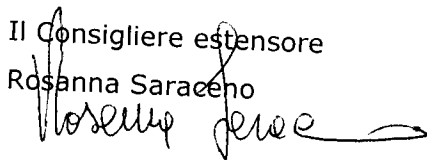 Il Consigliere estensore
Rosanna Saraceno